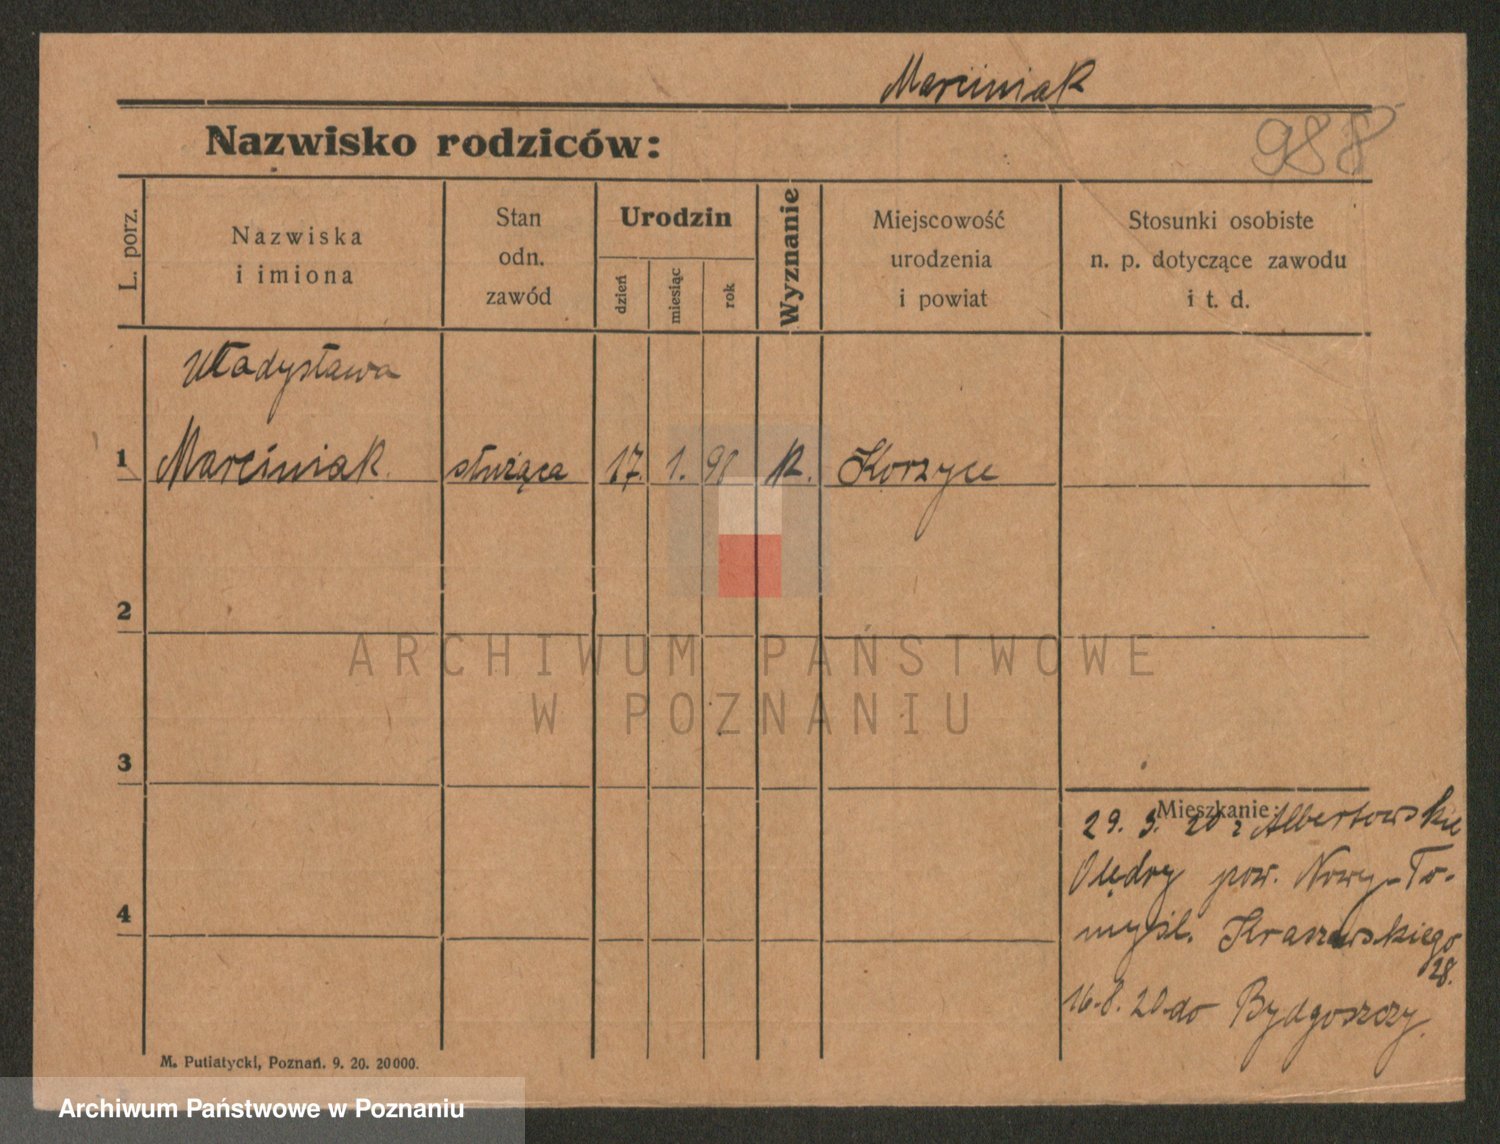 Marciniak
Nazwisko rodziców:
988
L. porz.
Nazwiska
i imiona
Stan
odn.
zawód
Urodzin
dzień
miesiąc
rok
Wyznanie
Miejscowość
urodzenia
i powiat
Stosunki osobiste
n. p. dotyczące zawodu
i t. d.
Władysława
1 Marciniak służąca 17. 1. 98 k. Korzyce
2
ARCHIWUM PAŃSTWOWE
W POZNANIU
3
Mieszkanie:
29. 3. 20 z Albertowskie
Olędry pow. Nowy-To-
myśl. Kraszewskiego
28.
4
16.8.20 do Bydgoszczy.
M. Putiatycki, Poznań. 9. 20. 20000.
Archiwum Państwowe w Poznaniu